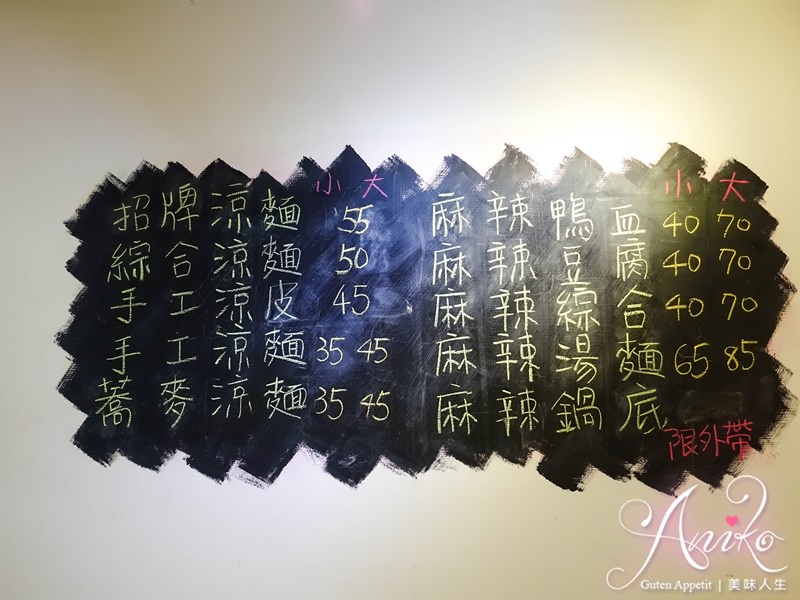 小 大
招牌涼麵 55
綜合涼麵 50
手工涼皮 45
手工涼麵 35 45
蕎麥涼麵 35 45
小 大
麻辣鴨血 40 70
麻辣豆腐 40 70
麻辣綜合 40 70
麻辣湯麵 65 85
麻辣鍋底
限外帶
Aniko
Guten Appetit | 美味人生